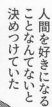 人間を好きになる
ことなんてないと
決めつけていた